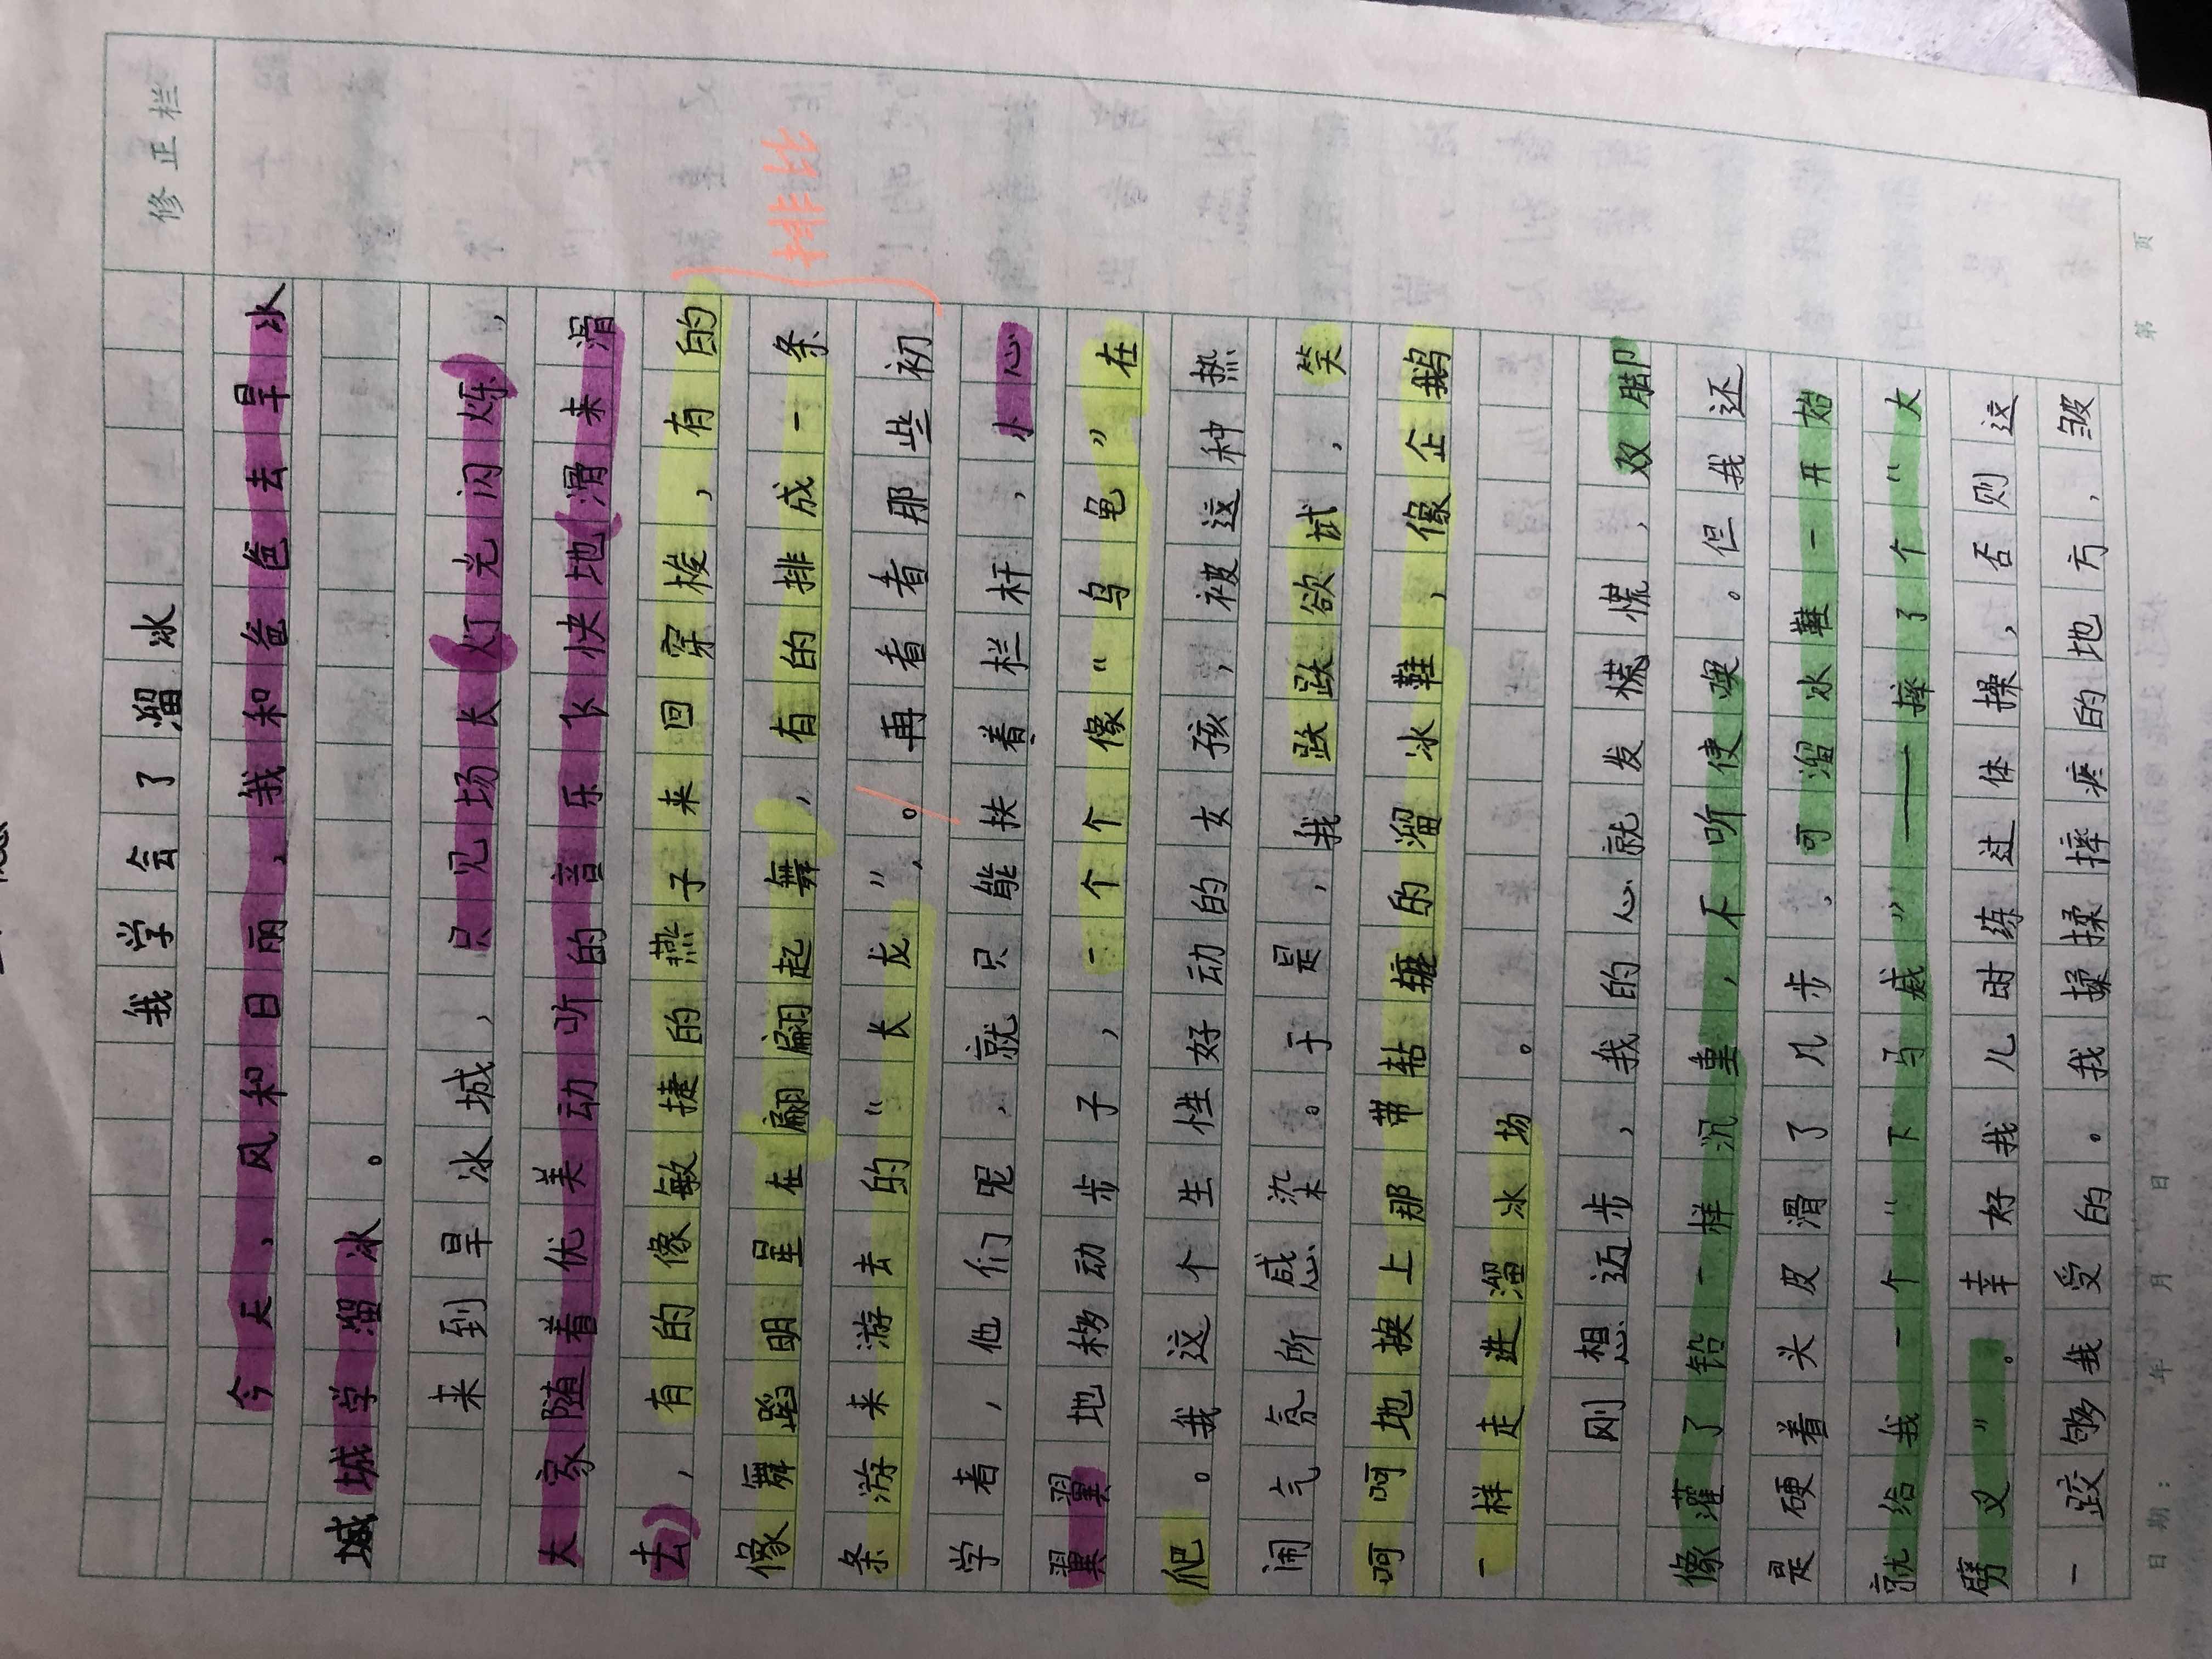 修正栏
我学会了溜冰
今天，风和日丽，我和爸爸去旱冰
城学溜冰。
来到旱冰城，只见场长灯光闪烁，
大家随着优美动听的音乐飞快地滑来滑
去，有的像敏捷的燕子来回穿梭，有的
像舞蹈明星在翩翩起舞，有的排成一条
条游来游去的“长龙”。再看看那些初
排比
学者，他们呢，就只能扶着栏杆，小心
翼翼地移动步子，一个个像“乌龟”在
爬。我这个生性好动的女孩，被这种热
闹气氛所感染。于是，我跃跃欲试，笑
呵呵地换上那带轱辘的溜冰鞋，像企鹅
一样走进溜冰场。
刚想迈步，我的心就发慌慌，双脚
像灌了铅一样沉重，不听使唤。但我还
是硬着头皮滑了几步，可溜冰鞋一开始
就给我一个“下马威”——摔了个“大
劈叉”。幸好我儿时练过体操，否则这
一跤够我受的。我揉揉摔疼的地方，皱
日期： 年 月 日
第 页